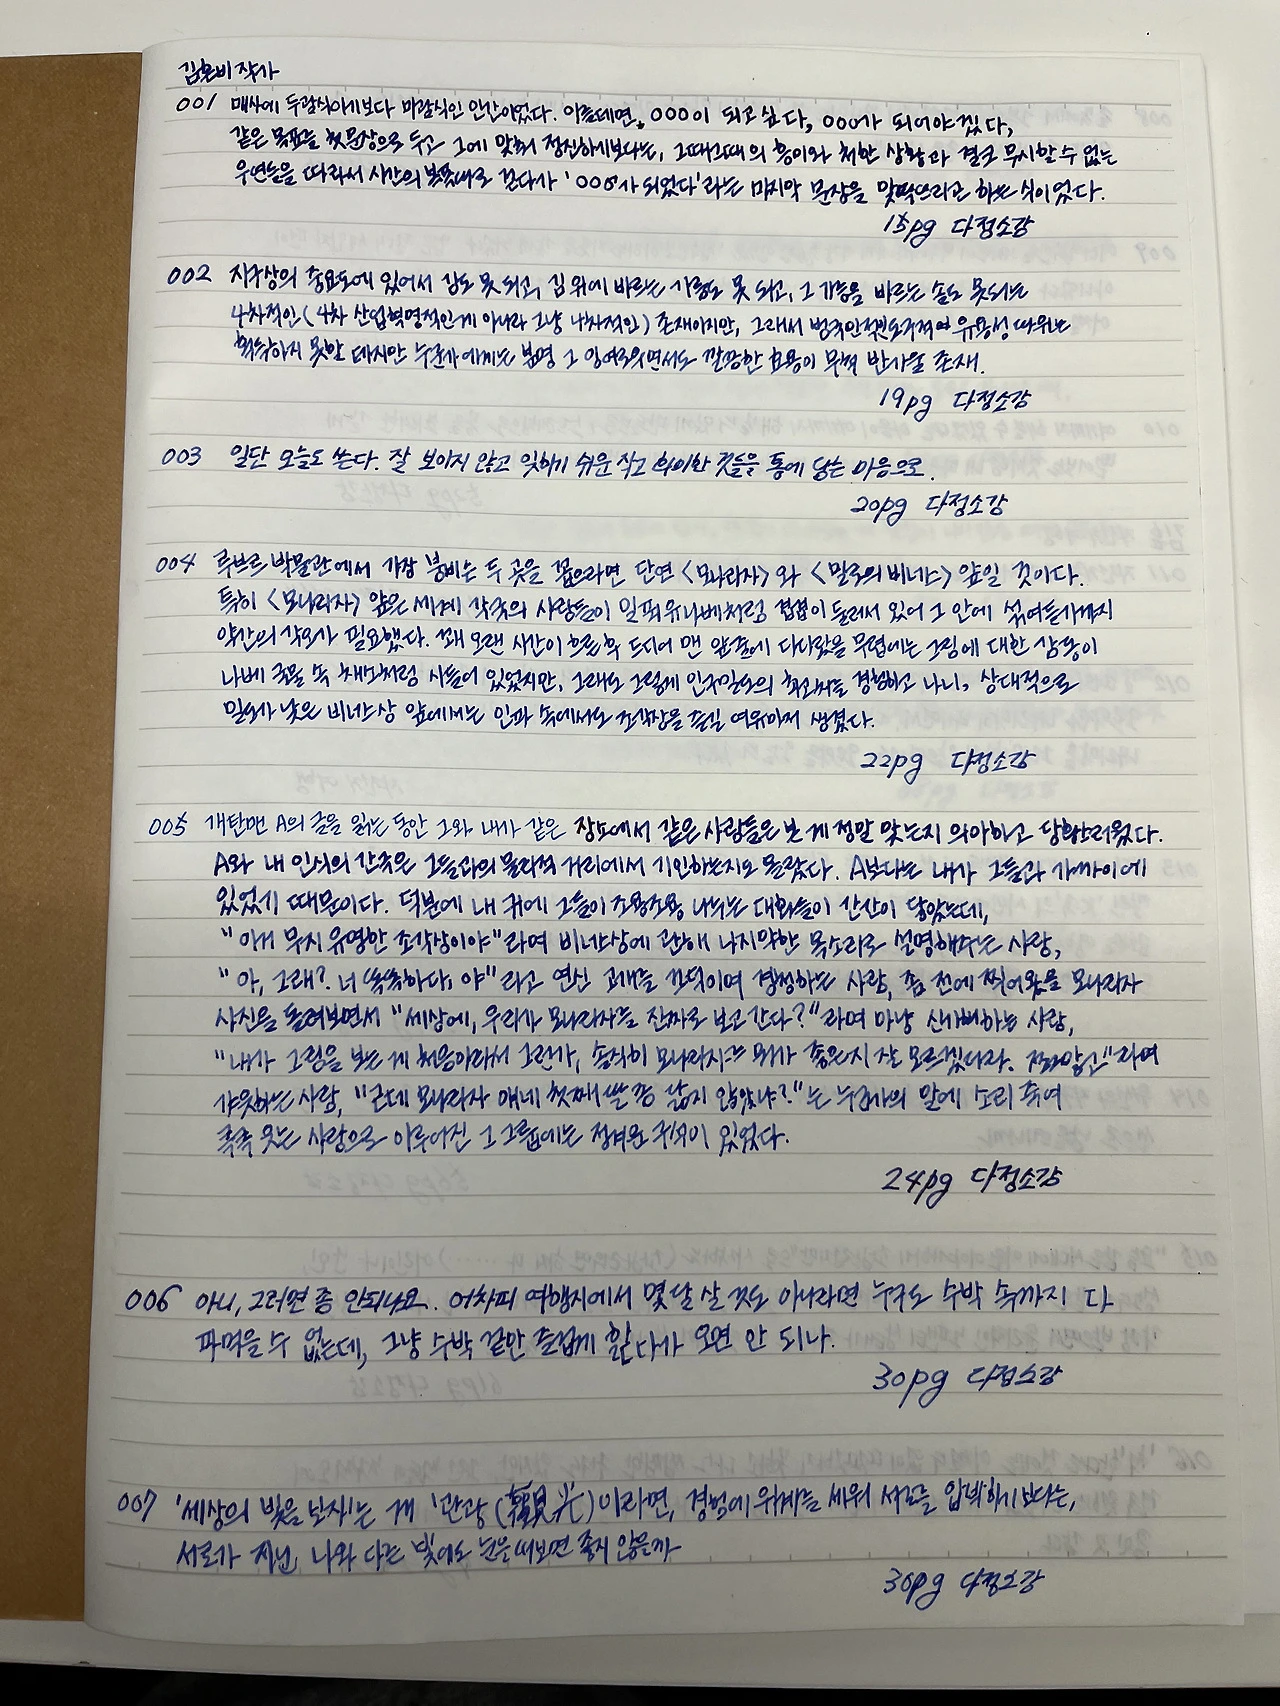 김혼비 작가
001 매사에 두괄식이기보다 미괄식인 인간이었다. 이를테면, 000이 되고 싶다, 000가 되어야겠다,
같은 목표를 첫 문장으로 두고 그에 맞춰 정진하기보다는, 그때그때의 흥미와 처한 상황과 결코 무시할 수 없는
우연들을 따라서 시간의 낯대로 걷다가 '000가 되었다'라는 마지막 문장을 맞딱뜨리곤 하는 식이었다.
15pg 다정소감
002 지구상의 중요도에 있어서 김도 못 되고, 김 위에 바르는 기름도 못 되고, 그 기름을 바르는 솔도 못되는
4차적인(4차 산업혁명적인게 아니라 그냥 4차적인) 존재이지만, 그래서 범국민적인 유용성 따위는
획득하지 못할 테지만 누군가에게는 분명 그 잉여로우면서도 깔끔한 효용이 무척 반가울 존재.
19pg 다정소감
003 일단 오늘도 쓴다. 잘 보이지 않고 잊히기 쉬운 작고 희미한 것들을 통에 담는 마음으로.
20pg 다정소감
004 루브르 박물관에서 가장 붐비는 두 곳을 꼽으라면 단연 <모나리자>와 <밀로의 비너스> 앞일 것이다.
특히 <모나리자> 앞은 세계 각국의 사람들이 밀푀유나베처럼 겹겹이 둘러서 있어 그 안에 섞여들기까지
약간의 각오가 필요했다. 꽤 오랜 시간이 흐른 후 드디어 맨 앞줄에 다다랐을 무렵에는 그림에 대한 감동이
나베 국물 속 채소처럼 시들어 있었지만, 그래도 그렇게 인구밀도의 최고치를 경험하고 나니, 상대적으로
밀도가 낮은 비너스상 앞에서는 인파 속에서도 조각상을 즐길 여유마저 생겼다.
22pg 다정소감
005 개탄맨 A의 글을 읽는 동안 그와 내가 같은 장소에서 같은 사람들을 본 게 정말 맞는지 의아하고 당황스러웠다.
A와 내 인식의 간극은 그들과의 물리적 거리에서 기인하는지도 몰랐다. A보다는 내가 그들과 가까이에
있었기 때문이다. 덕분에 내 귀에 그들이 조용조용 나누는 대화들이 간간이 닿았는데,
"이거 무지 유명한 조각상이야"라며 비너스상에 관해 나지막한 목소리로 설명해주는 사람,
"아, 그래? 너 똑똑하다, 야"라고 연신 고개를 끄덕이며 경청하는 사람, 좀 전에 찍어왔을 모나리자
사진을 돌려보면서 "세상에, 우리가 모나리자를 진짜로 보고 간다?"라며 마냥 신기해하는 사람,
"내가 그림을 보는 게 처음이라서 그런가, 솔직히 모나리자는 뭐가 좋은지 잘 모르겠더라. 쪼마맣고"라며
갸웃하는 사람, "근데 모나리자 얘네 첫째 딸 좀 닮지 않았냐?"는 누군가의 말에 소리 죽여
쿡쿡 웃는 사람으로 이루어진 그 그룹에는 정겨운 귀퉁이 있었다.
24pg 다정소감
006 아니, 그러면 좀 안되나요. 어차피 여행지에서 몇 달 살 것도 아니라면 누구도 수박 속까지 다
파먹을 수 없는데, 그냥 수박 겉만 즐겁게 핥다가 오면 안 되나.
30pg 다정소감
007 '세상의 빛을 보자'는 게 '관광(觀光)'이라면, 경험에 위계를 세워 서로를 압박하기보다는,
서로가 지닌, 나와 다른 빛에도 눈을 떠보면 좋지 않을까
30pg 다정소감